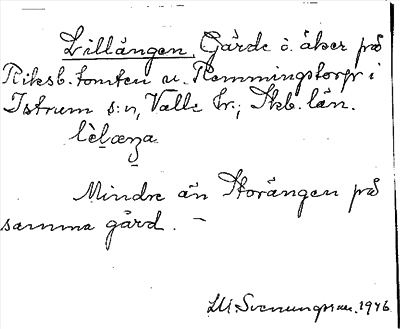 Lillängen, Gärde o. åker på
Riksb. tomten u. Remmingstorp i
Istrum s:n, Valle hr., Skb. län.
Mindre än Storängen på
samma gård. –
1946.